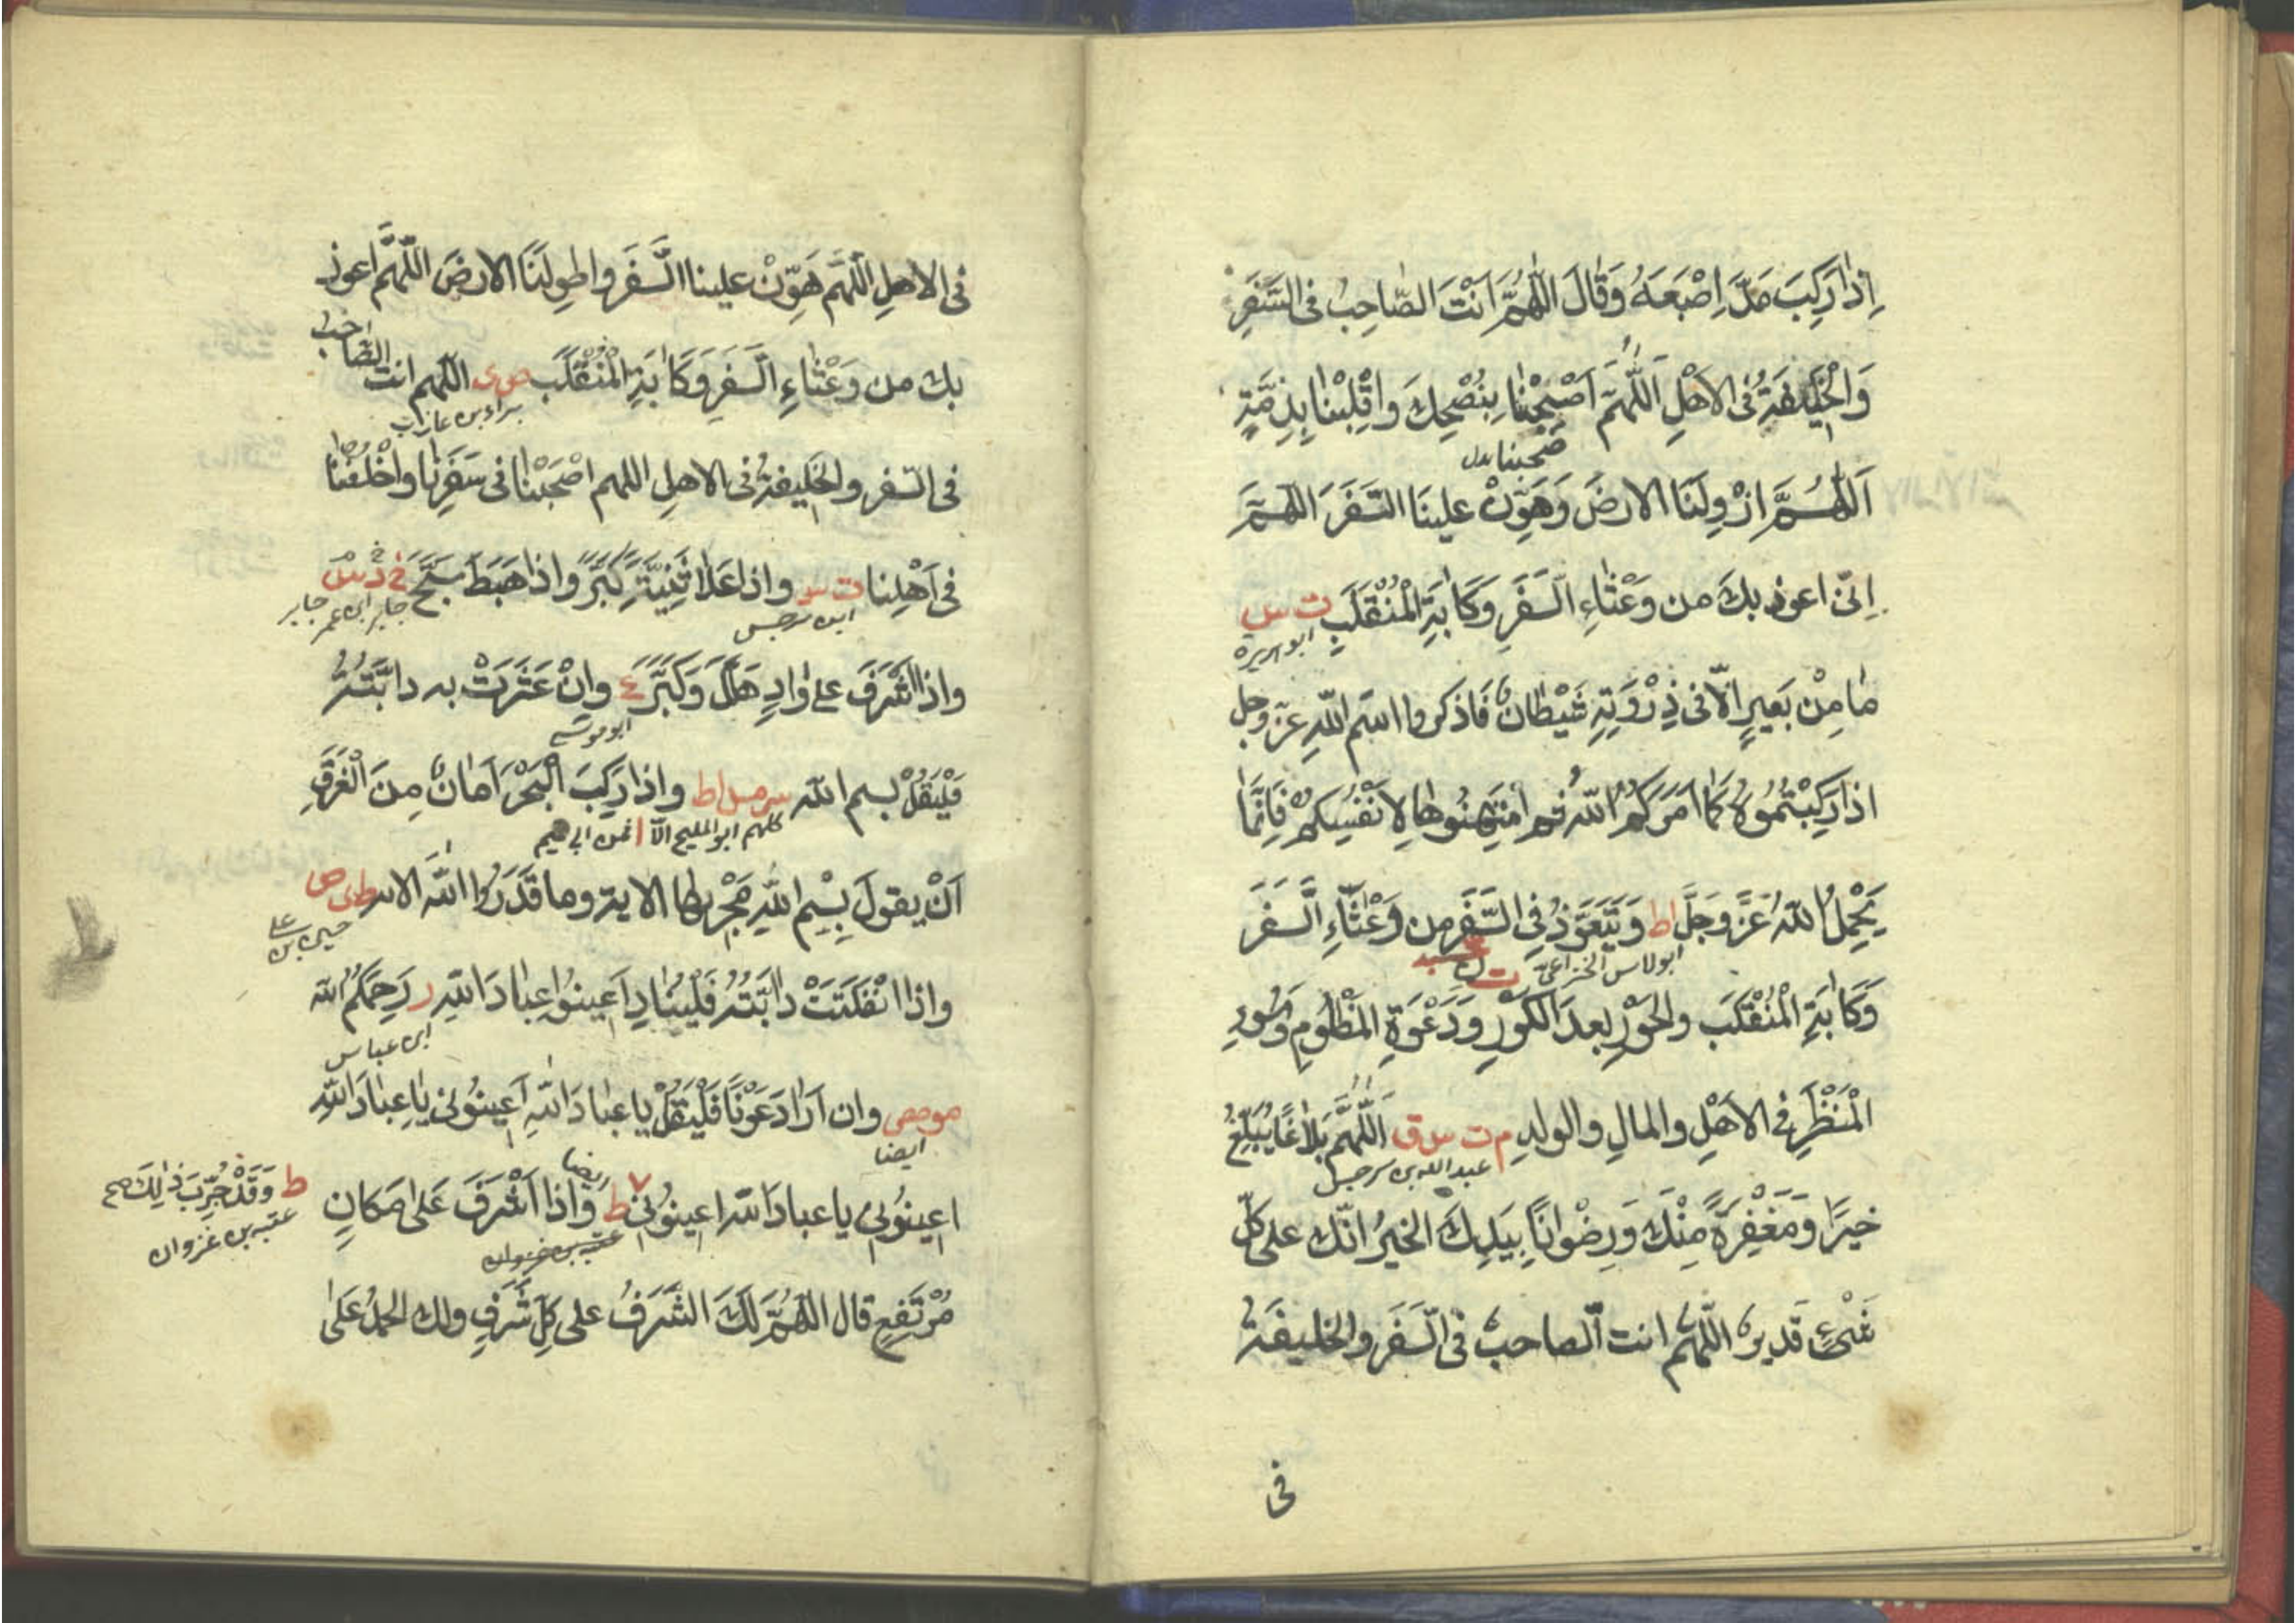 اِذَا رَكِبَ مَدَّ اِصْبَعَهُ وَقَالَ اللّٰهُمَّ اَنْتَ الصَّاحِبُ فى السَّفَرِ
وَالْخَلِيفَةُ فى الاَهْلِ اَللّٰهُمَّ اَصْحِبْنَا بِنُصْحِكَ وَاقْلِبْنَا بِذِمَّةٍ
صحبنا بدل
اَللّٰهُمَّ ازْوِ لَنَا الارضَ وَهَوِّنْ علينَا السَّفَرَ اللّهمَّ
اِنّى اعوذ بكَ من وَعْثَاءِ السَّفَرِ وَكَابَةِ الْمُنْقَلَبِ ت س
ابو هريرة
مَا مِنْ بَعيرٍ اِلاّ فى ذِرْوَتِهِ شَيْطَانٌ فَاذكروا اسْمَ اللّٰهِ عزّ وجل
اذا رَكِبْتُمُوهُ كَمَا اَمَرَكُمُ اللّٰهُ ثم امْتَهِنُوها لِاَنْفُسِكُمْ فَاِنَّمَا
يَحْمِلُ اللّٰهُ عَزَّ وَجَلَّ اط وَيَتَعَوَّذُ فى السَّفَرِ من وَعْثَاءِ السَّفَرَ
ابو لاس الخزاعى
وَكَابَةِ الْمُنْقَلَبِ والحَوْرِ بعدَ الكَوْرِ وَدَعْوَةِ المَظْلُومِ وَسُوءِ
الْمَنْظَرِ فى الاَهْلِ والمالِ والولدِ م ت س ق اَللّٰهُمَّ بَلاَغًا يُبَلِّغُ
عبد الله بن سرجس
خيرًا وَمَغْفِرَةً مِنْكَ وَرِضْوَانًا بِيَدِكَ الخيرُ انّك على كلّ
شَىْءٍ قَديرٌ اللّٰهُمَّ انت الصاحبُ فى السَّفَرِ والخليفَةُ
فى
فى الاهلِ اللّهُمَّ هَوِّنْ علينا السَّفَرَ واطْوِ لَنَا الارضَ اللّٰهُمَّ اعوذ
بك من وَعْثَاءِ السَّفَرِ وَكَابَةِ الْمُنْقَلَبِ ص ى اللّهم انت الصَّاحب
براء بن عازب
فى السّفر والخَليفةُ فى الاهلِ اللهم اصْحَبْنَا فى سَفَرِنَا وَاخْلُفْنَا
فى اَهْلِنا ت س واذا عَلاَ ثَنِيَّةً كَبَّرَ واذا هَبَطَ سَبَّحَ خ د س
ابن سرجس جابر ابن عمر جابر
واذا اَشْرَفَ على وَادٍ هَلَّلَ وَكَبَّرَ ع وانْ عَثَرَتْ به دابَّتُهُ
ابو موسى
فَلْيَقُلْ بسم اللّه س مس اط واذا رَكِبَ الْبَحْرَ اَمَانٌ مِنَ الْغَرَقِ
كلهم ابو المليح الا
اَنْ يقولَ بِسْمِ اللّٰهِ مَجْرٖيهَا الاية وما قَدَرُوا اللّٰه الاية ط ى ص
حسين بن على
واذا انْفَلَتَتْ دابّتُهُ فَلْيُنَادِ اَعينُوا عِبَادَ اللّٰهِ ر رَحِمَكُمُ اللّه
ابن عباس
مو مص وان اَرَادَ عَوْنًا فَلْيَقُلْ يا عبَادَ اللّٰهِ اَعينُونى يا عِبَادَ اللّٰهِ
ايضا
اعينُونى يا عبادَ اللّه اعينُونى ط واذا اَشْرَفَ عَلى مَكانٍ
ط وَقَدْ جُرِّبَ ذٰلِكَ صح
عتبه بن غزوان
عتبه بن غزوان
مُرْتَفِعٍ قال اللّهُمَّ لَكَ الشَّرَفُ على كلّ شَرَفٍ ولك الحَمْدُ عَلَى